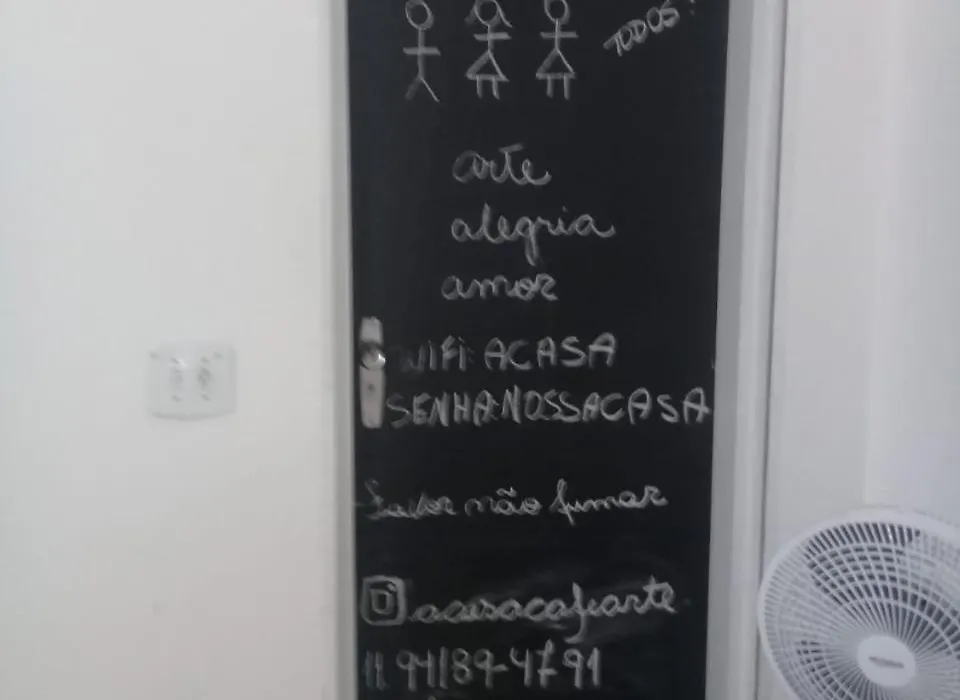 TODOS!
arte
alegria
amor
WIFI: ACASA
SENHA:NOSSACASA
Favor não fumar
acasacafearte
11 94189-4791